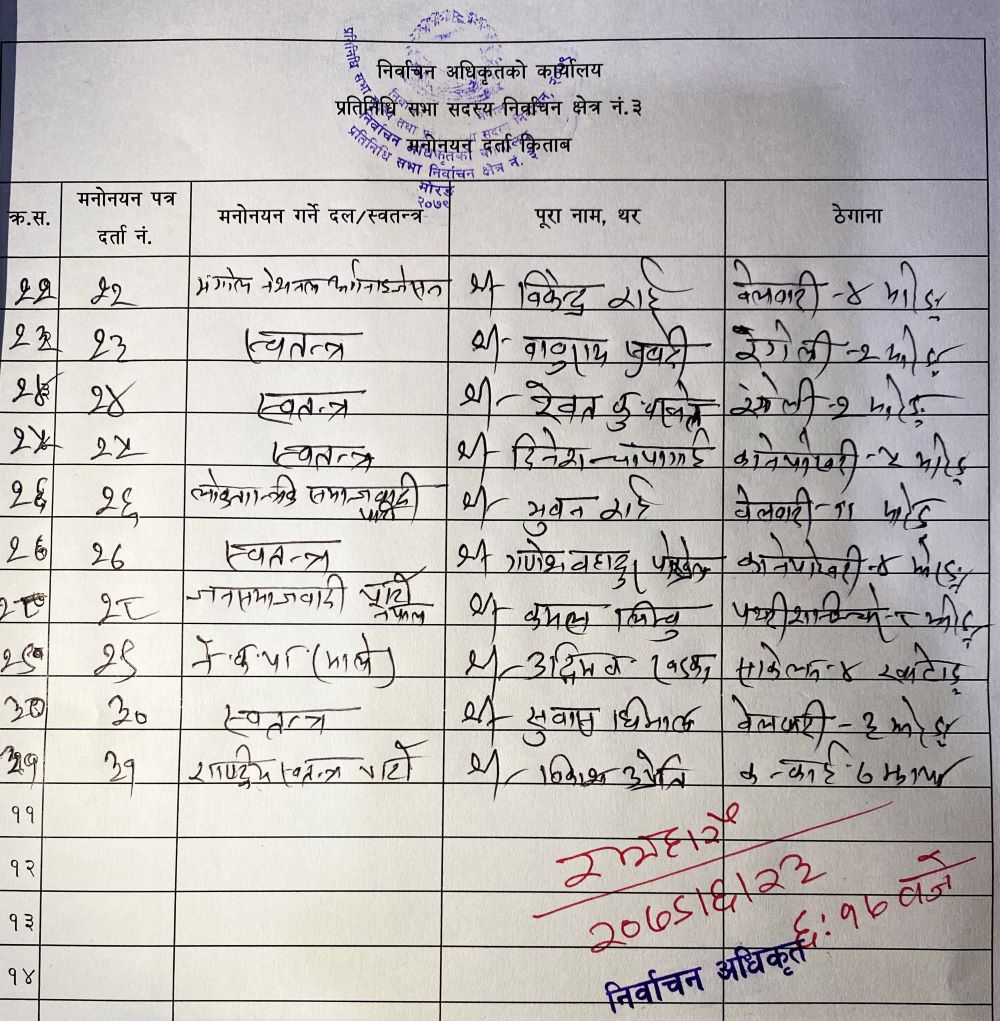 निर्वाचन अधिकृतको कार्यालय
प्रतिनिधि सभा सदस्य निर्वाचन क्षेत्र नं.३
मनोनयन दर्ता किताब
प्रतिनिधि सभा निर्वाचन क्षेत्र नं. ३
मोरङ
२०७९
क्र.स. मनोनयन पत्र दर्ता नं. मनोनयन गर्ने दल/स्वतन्त्र पूरा नाम, थर ठेगाना
२२ २२ मंगोल नेशनल अर्गनाइजेसन श्री विकेन्द्र राई बेलवारी -४ मोरङ
२३ २३ स्वतन्त्र श्री रंगेली -२ मोरङ
२४ २४ स्वतन्त्र श्री रेवत कु. रंगेली -२ मोरङ
२५ २५ स्वतन्त्र श्री दिनेश चापागाई कानेपोखरी -५ मोरङ
२६ २६ लोकतान्त्रिक समाजवादी पार्टी श्री भुवन राई बेलवारी -११ मोरङ
२७ २७ स्वतन्त्र श्री गणेश बहादुर पोखरेल कानेपोखरी -४ मोरङ
२८ २८ जनसमाजवादी पार्टी नेपाल श्री कमल लिम्बु पथरीशनिश्चरे -८ मोरङ
२९ २९ ने.क.पा (माले) श्री खड्का साकेला -४ खोटाङ
३० ३० स्वतन्त्र श्री सुवास धिमाल बेलवारी -३ मोरङ
३१ ३१ राष्ट्रिय स्वतन्त्र पार्टी श्री विकाश उप्रेति ७ झापा
११
१२
१३
१४
२०७९।६।२३
६:१७ बजे
निर्वाचन अधिकृत